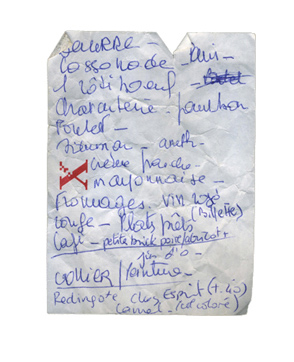 BEURRE -
Cassonade - Pain -
1 rôti boeuf -
Charcuterie - jambon
Poulet -
crème fraîche -
mayonnaise -
fromages - Vin rosé
rouge - Plats prêts (Billettes)
Café - petite brick poire/abricot +
jus d'o -
COLLIER / Peinture -
Redingote chez Esprit (T. 40)
Camel - / col coloré)